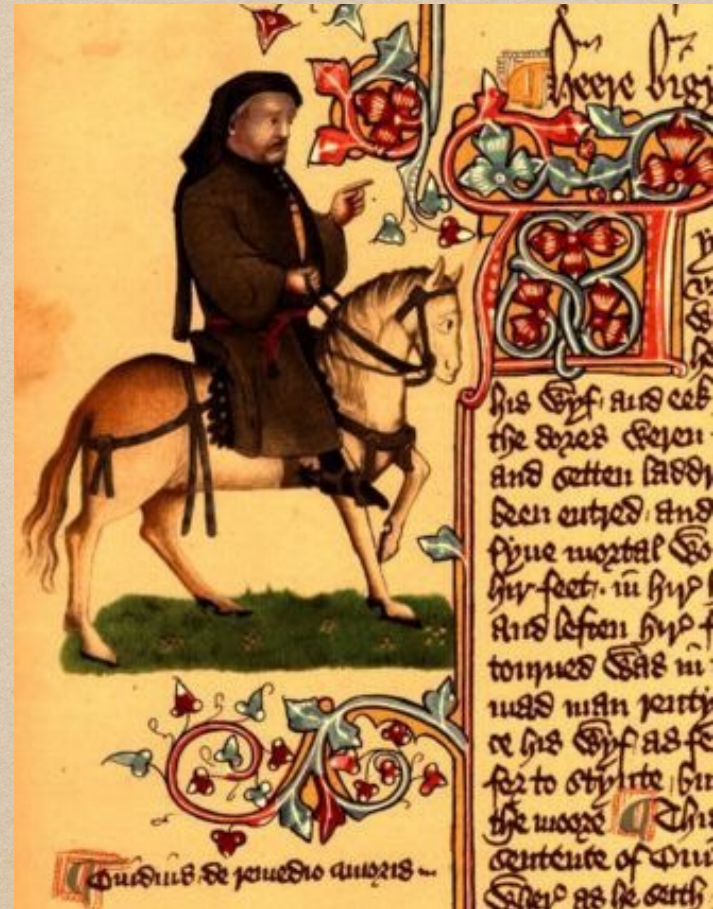 Heere bigy
his wyf and eek
the dores weren
and setten laddr
been entred and
fyue mortal wo
hir feet in hir
And leften hir f
tourned was in
mad man renty
ce his wyf as fe
for to stynte hir
the moore ¶ This
sentence of Oui
wher as he seith
¶ Ouidius de remedio amoris